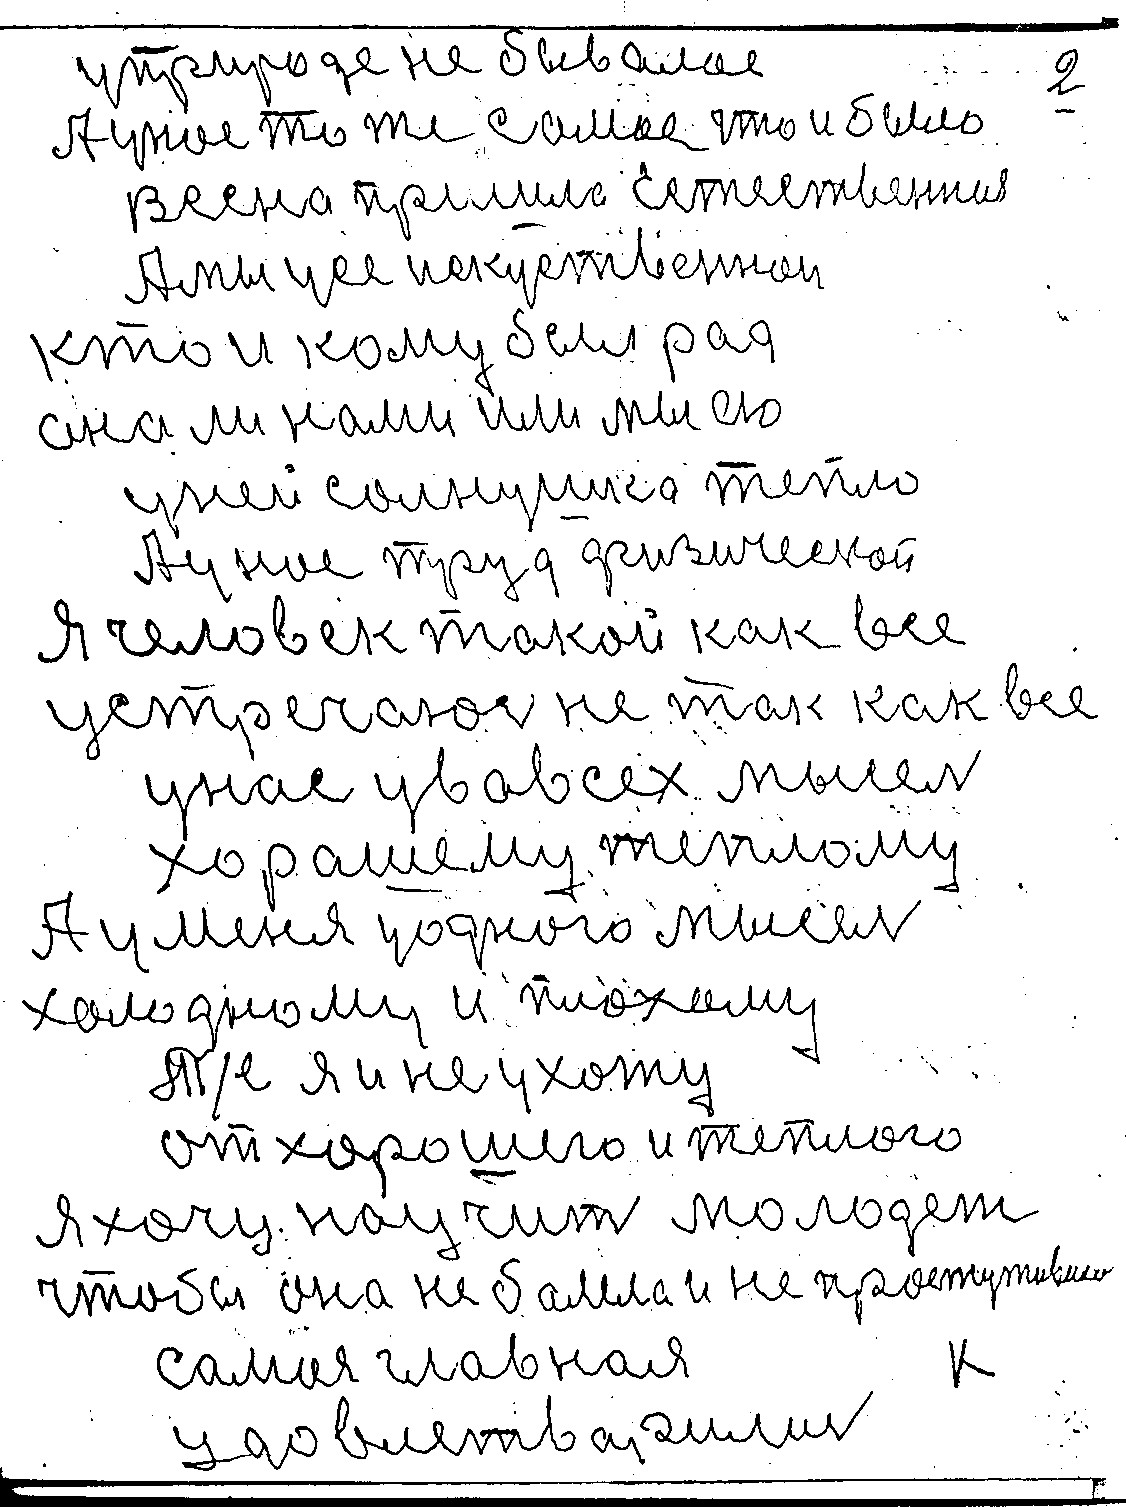 уприроде не бывалое 2
А у нас то же самое что и было
весна пришла естественная
А мы у ее искуственной
кто и кому был рад
она ли нами или мы ею
у ней солнушка тепло
А у нас труд физической
Я человек такой как все
устречаюс не так как все
у нас у вавсех мысел
хорашему теплому
А у меня уодного мысел
холодному и плохому
Т/е я и не ухожу
от хорошего и теплого
я хочу научит молодеж
чтобы она не балела и не простуживалс
самая главная К